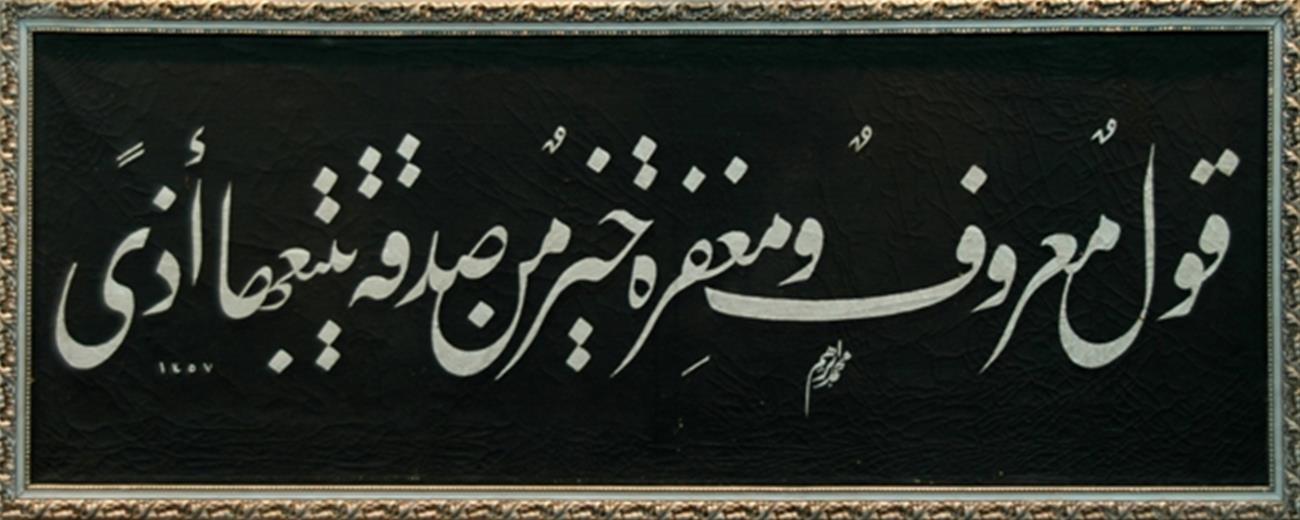 قولٌ معروفٌ ومغفرة خيرٌ من صدقة يتبعها أذىً
محمد ابراهيم
١٤٥٧